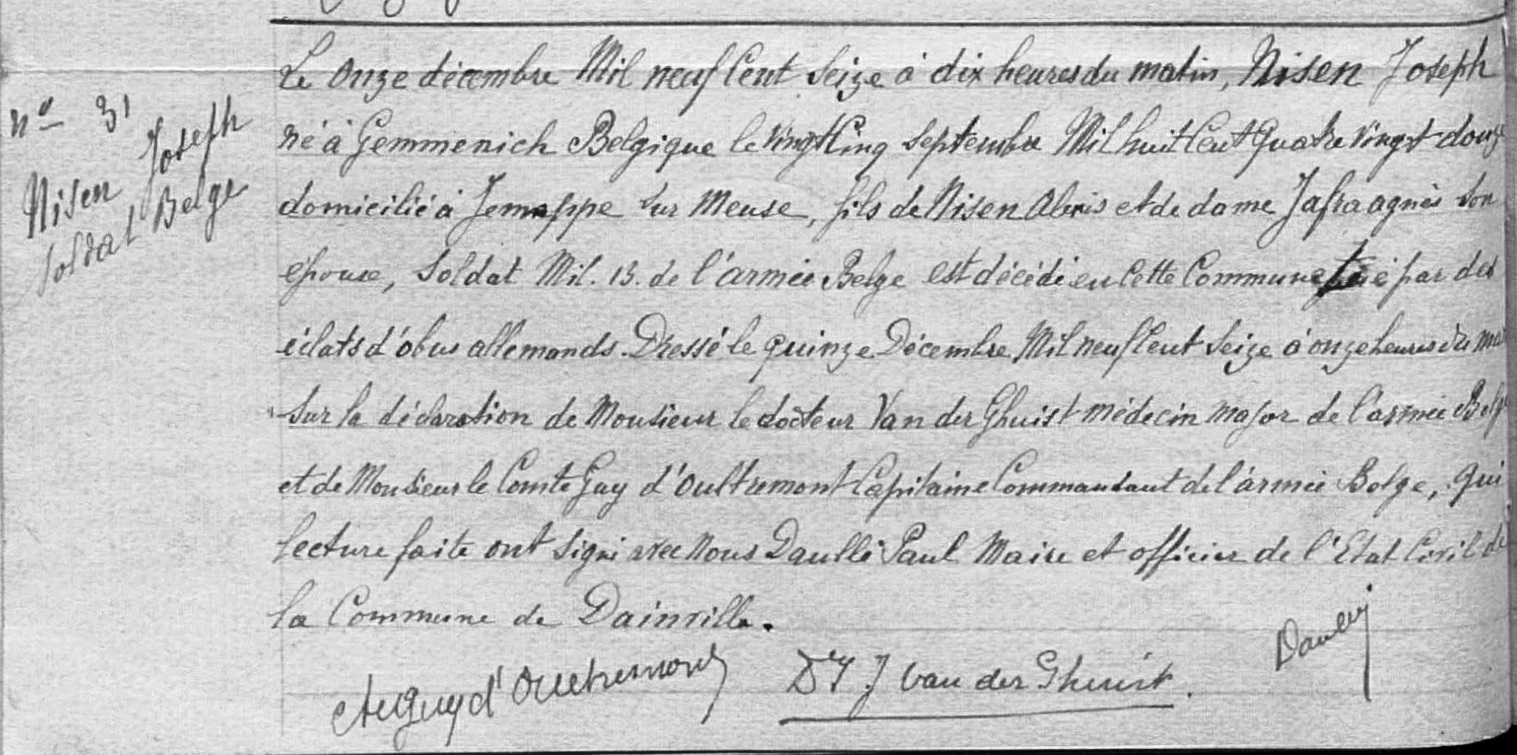 n° 31
Nisen Joseph
soldat Belge
Le onze décembre Mil neuf Cent Seize à dix heures du matin, Nisen Joseph
né à Gemmenich Belgique le Vingt Cinq septembre Mil huit Cent Quatre Vingt douze
domicilié à Jemeppe sur Meuse, fils de Nisen Alexis et de dame Jafra agnès son
épouse, Soldat Mil. 13. de l'armée Belge est décédé en Cette Commune tué par des
éclats d'obus allemands. Dressé le quinze Décembre Mil neuf Cent Seize à onze heures du ma
Sur la déclaration de Monsieur le docteur Van der Ghuist médecin major de l'armée Belge
et de Monsieur le Comte Guy d'Oultremont Capitaine Commandant de l'armée Belge, qui
lecture faite ont signé avec Nous Daullé Paul Maire et officier de l'Etat Civil de
la Commune de Dainville.
Guy d'Oultremont Dr J Van der Ghuist. Daullé